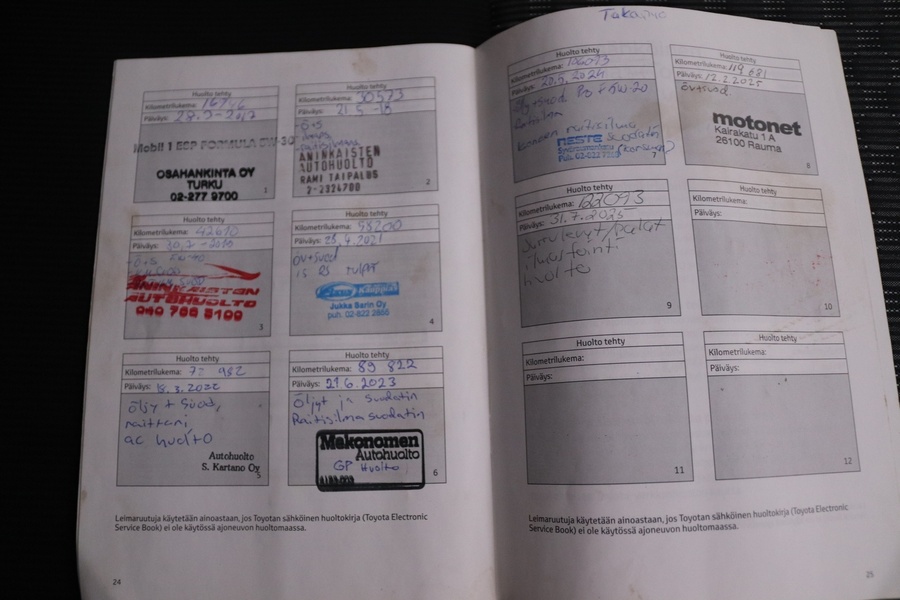 Huolto tehty
Kilometrilukema:
Päiväys: 28.
Mobil 1 ESP FORMULA 5W-30
OSAHANKINTA OY
TURKU
02-277 9700
1
Huolto tehty
Kilometrilukema: 30573
Päiväys: 21.5 -18
-Ö+S
ANINKAISTEN
AUTOHUOLTO
RAMI TAIPALUS
2-2324700
2
Huolto tehty
Kilometrilukema: 42610
Päiväys:
-Ö+S
ANINKAISTEN
AUTOHUOLTO
040 766 5100
3
Huolto tehty
Kilometrilukema: 58200
Päiväys: 4.2021
öv+suod
tulpat
Jukka Sarin Oy
puh. 02-822 2855
4
Huolto tehty
Kilometrilukema: 72 982
Päiväys: 18.3.2022
öljy + suod,
raittari
ac huolto
Autohuolto
S. Kartano Oy
5
Huolto tehty
Kilometrilukema: 89 822
Päiväys: 21 6.2023
Öljyt ja suodatin
Raitisilma suodatin
Mekonomen
Autohuolto
GP Huolto
6
Leimaruutuja käytetään ainoastaan, jos Toyotan sähköinen huoltokirja (Toyota Electronic
Service Book) ei ole käytössä ajoneuvon huoltomaassa.
24
Huolto tehty
Kilometrilukema:
Päiväys: 2024
+suod
Raitisilma
koneen raitisilma
NESTE suodatin
7
Huolto tehty
Kilometrilukema: 119 681
Päiväys: 12.2.2025
öv+suod.
motonet
Kairakatu 1 A
26100 Rauma
8
Huolto tehty
Kilometrilukema: 122093
Päiväys: 31.7.2025
Jarrulevyt/palat
huolto
9
Huolto tehty
Kilometrilukema:
Päiväys:
10
Huolto tehty
Kilometrilukema:
Päiväys:
11
Huolto tehty
Kilometrilukema:
Päiväys:
12
Leimaruutuja käytetään ainoastaan, jos Toyotan sähköinen huoltokirja (Toyota Electronic
Service Book) ei ole käytössä ajoneuvon huoltomaassa.
25